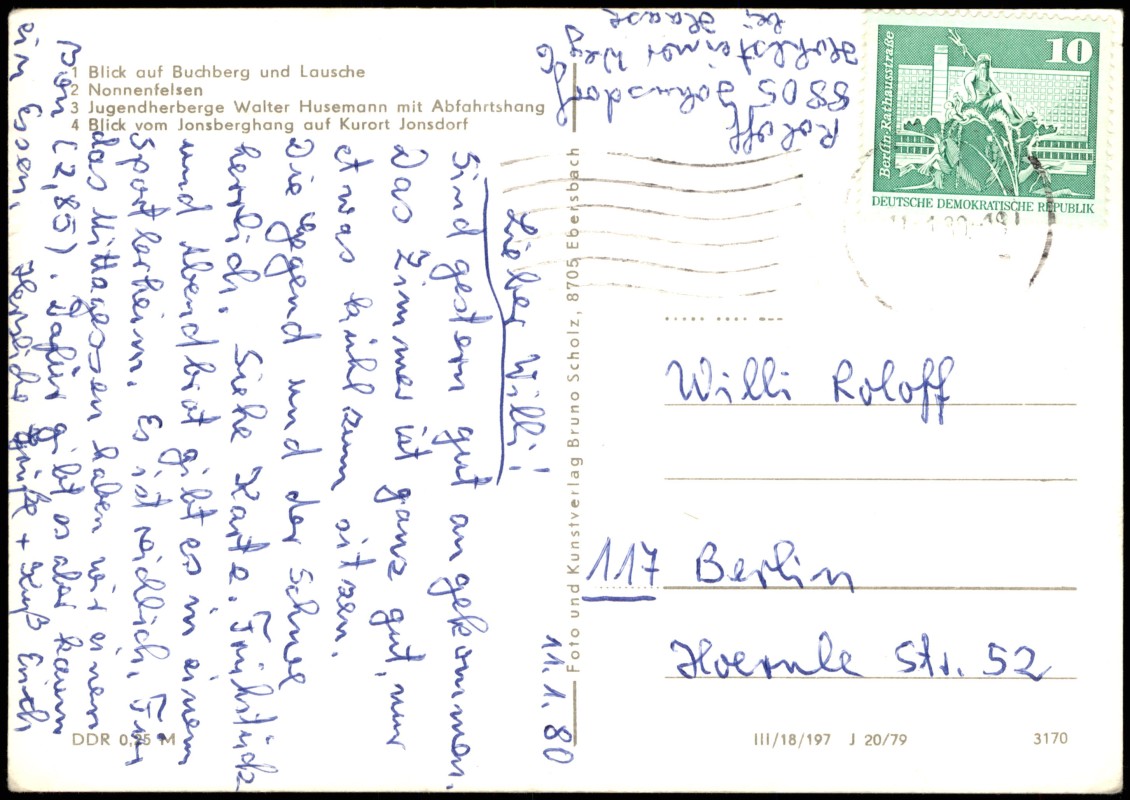 1 Blick auf Buchberg und Lausche
2 Nonnenfelsen
3 Jugendherberge Walter Husemann mit Abfahrtshang
4 Blick vom Jonsberghang auf Kurort Jonsdorf
11.1.80
Lieber Willi!
Sind gestern gut angekommen.
Das Zimmer ist ganz gut, nur
etwas kühl zum sitzen.
Die Gegend und der Schnee
herrlich. Siehe Karte. Frühstück
und Abendbrot gibt es in einem
Sportlerheim. Es ist reichlich. Für
das Mittagessen haben wir einen
Bon (2,85). Dafür gibt es aber kaum
ein Essen. Herzliche Grüße + Kuß
Foto und Kunstverlag Bruno Scholz, 8705 Ebersbach
Roloff
8805 Jonsdorf
Weg 6
bei Haase
10
Berlin-Rathausstraße
DEUTSCHE DEMOKRATISCHE REPUBLIK
Willi Roloff
117 Berlin
Hoernle Str. 52
DDR 0,25 M
III/18/197 J 20/79
3170